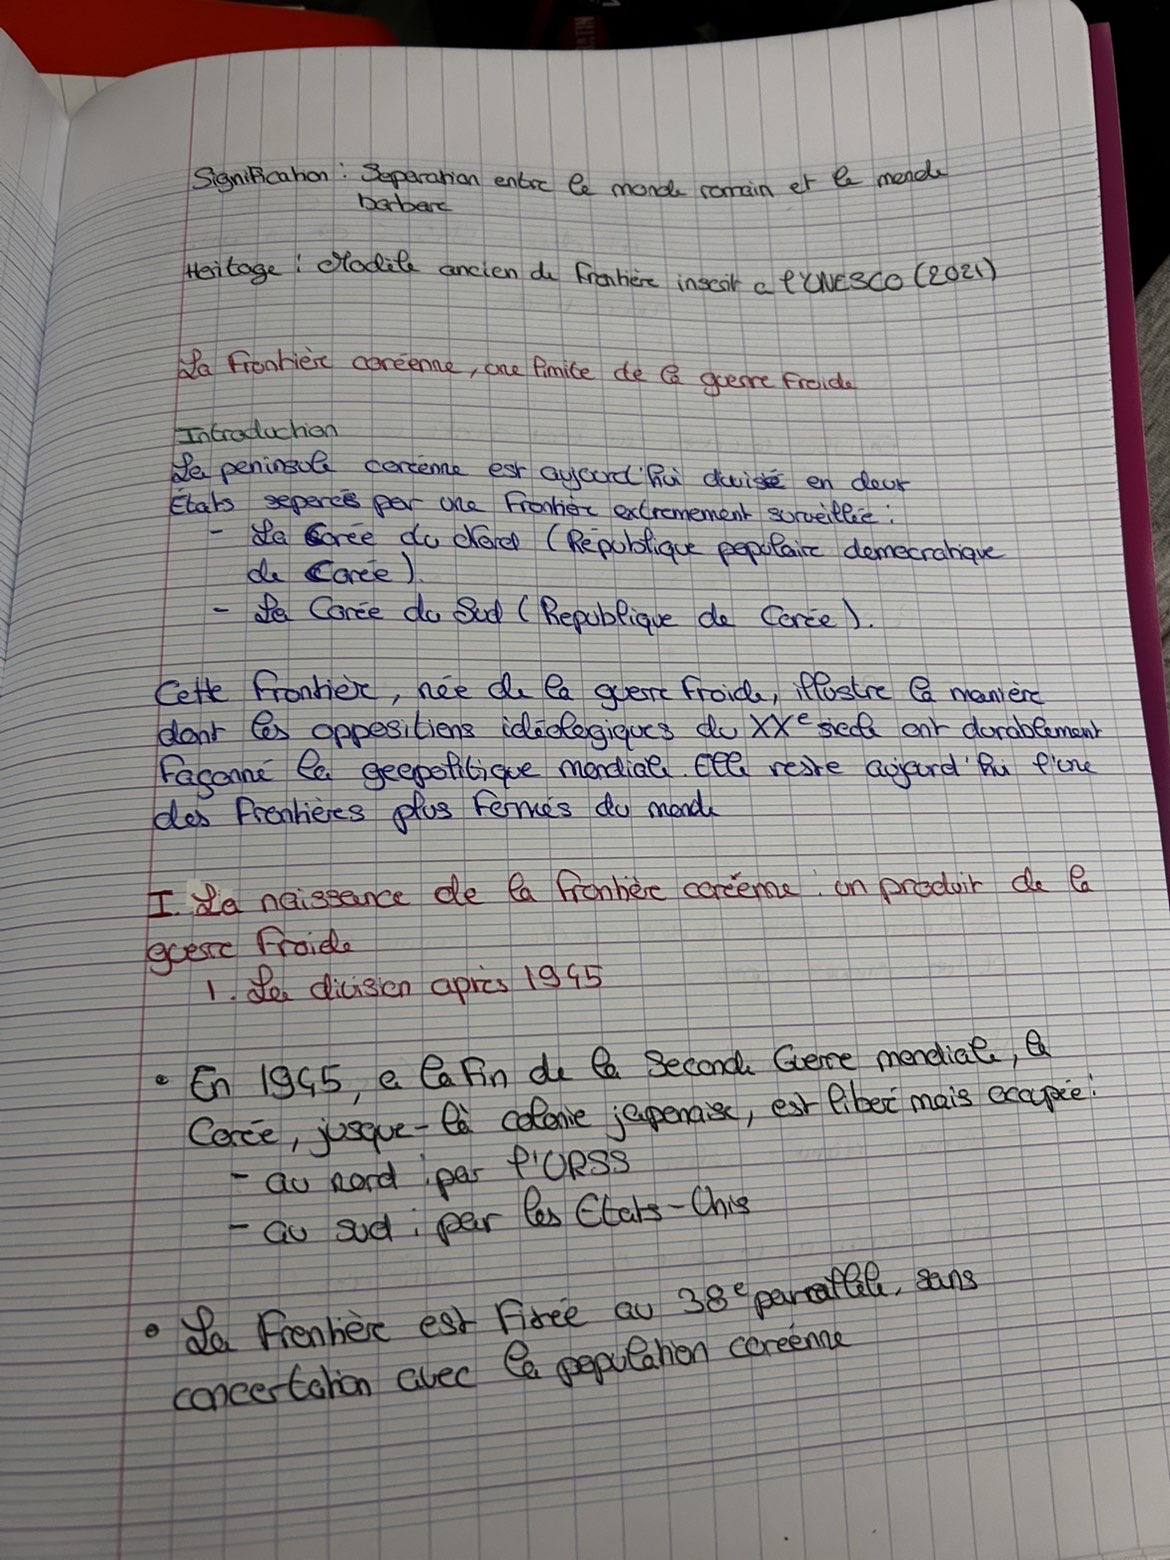 Signification : Separation entre le monde romain et le monde
barbare
Heritage : Modèle ancien de frontière inscrit a l'UNESCO (2021)
La frontière coréenne, une limite de la guerre froide
Introduction
La peninsule coréenne est aujourd'hui divisée en deux
États separés par une frontière extremement surveillée :
- La Corée du Nord (République populaire democratique
de Corée).
- La Corée du Sud (Republique de Corée).
Cette frontière, née de la guerre froide, illustre la manière
dont les oppositions idéologiques du XXe siecle ont durablement
façonné la geopolitique mondiale. Elle reste aujourd'hui l'une
des frontières plus fermés du monde
I. La naissance de la frontière coréenne : un produit de la
guerre froide
1. La division après 1945
• En 1945, a la fin de la Seconde Guerre mondiale, la
Corée, jusque-là colonie japonaise, est liberé mais occupée :
- au nord : par l'URSS
- au sud : par les Etats-Unis
• La frontière est fixée au 38e parrallèle, sans
concertation avec la population coréenne